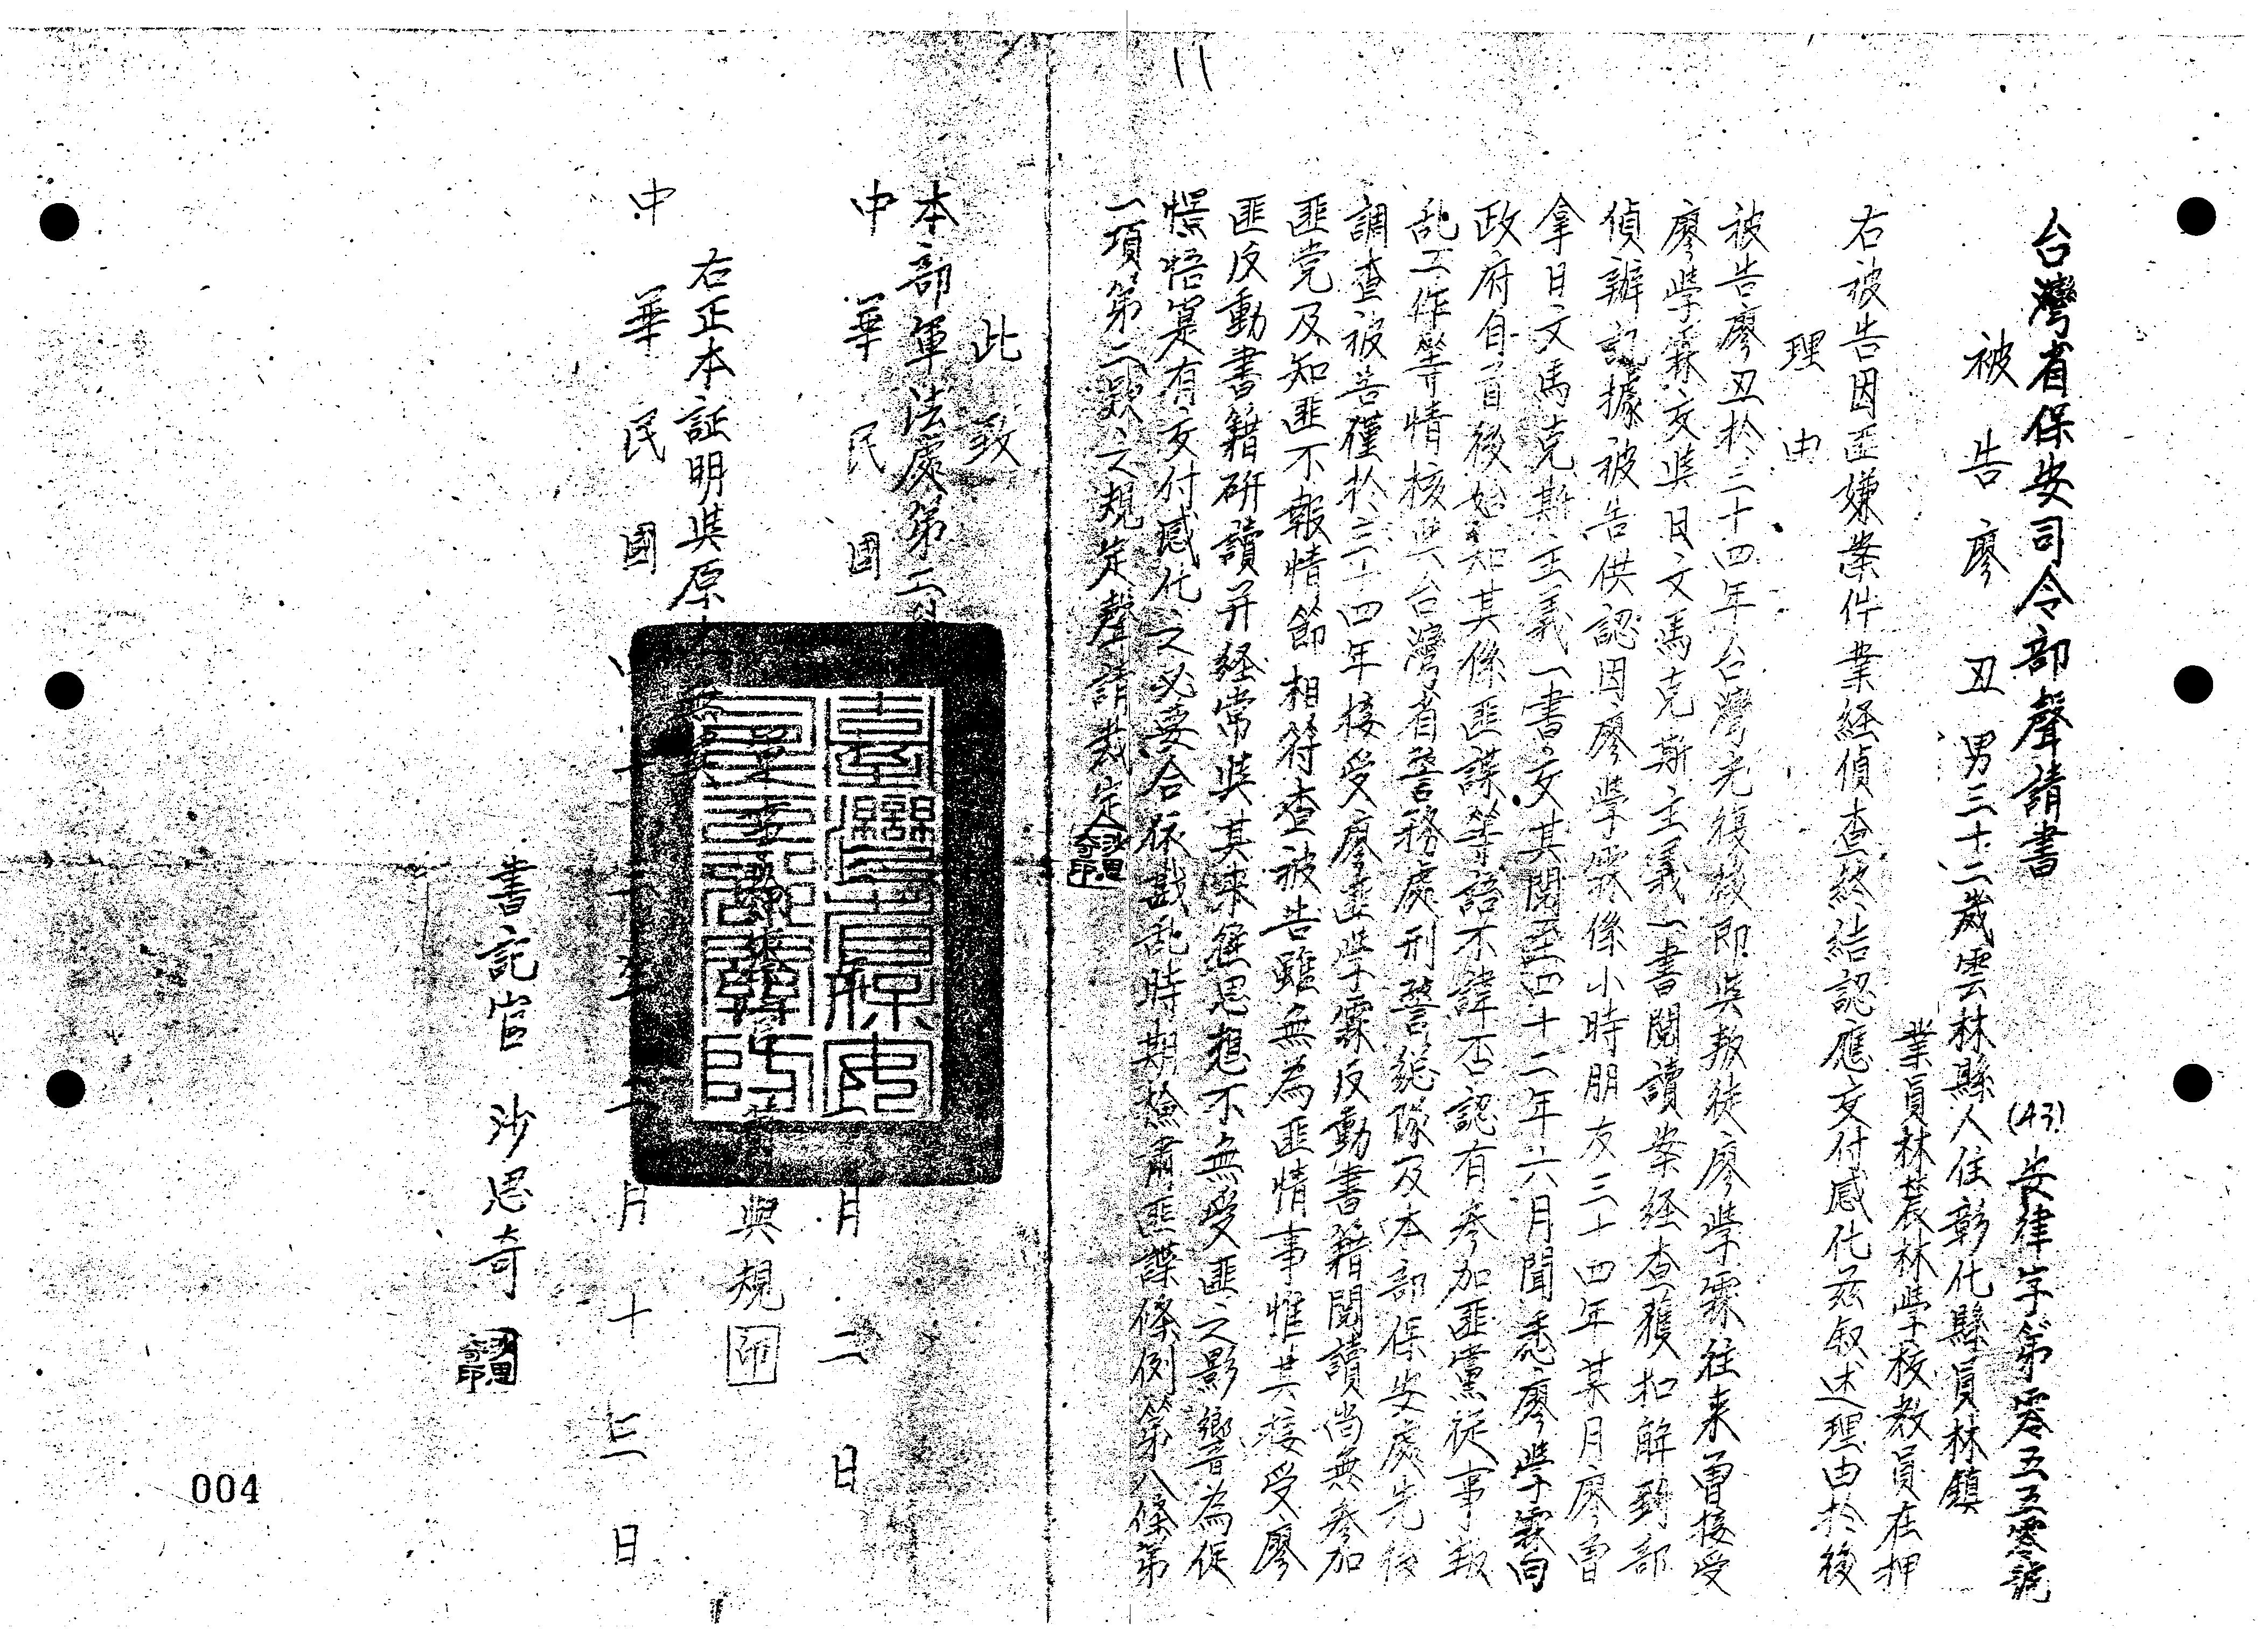 台灣省保安司令部聲請書
(43)安律字第零五五零號
被告廖丑 男三十二歲雲林縣人住彰化縣員林鎮
業員林農林學校教員在押
右被告因匪嫌案件業経偵查終結認應交付感化玆叙述理由於後
理由
被告廖丑於三十四年台灣光復後即與叛徒廖學霖往来曽接受
廖學霖交與日文馬克斯主義一書閱讀案経查獲扣解到部
偵辦記據被告供認因廖學霖係小時朋友三十四年某月廖曽
拿日文馬克斯主義一書交其閱至四十二年六月聞悉廖學霖向
政府自首後始知其係匪諜等語不諱否認有參加匪黨從事叛
乱工作等情核與台灣省警務處刑警総隊及本部保安處先後
調查被告僅於三十四年接受廖匪學霖反動書籍閱讀尚無參加
匪党及知匪不報情節相符查被告雖無為匪情事惟其接受廖
匪反動書籍研讀并経常與其来往思想不無受匪之影響為促
憬悟寔有交付感化之必要合依戡乱時期檢肅匪諜條例第八條第
一項第二款之規定聲請裁定
此致
本部軍法處第二
中華民國 月二日
與規 印
右正本証明與原本無異
中華民國 月十三日
書記官 沙思奇
004